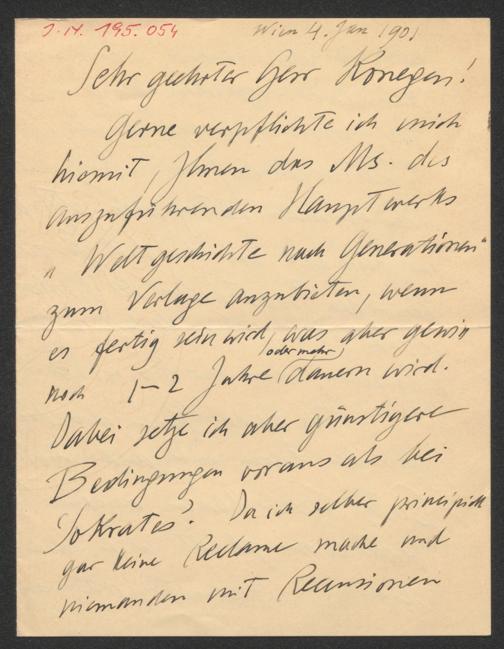 J. N. 195.054
Wien 4. Jan 1901
Sehr geehrter Herr Konegen!
Gerne verpflichte ich mich
hiemit, Ihnen das Ms. des
auszuführenden Hauptwerks
„Weltgeschichte nach Generationen"
zum Verlage anzubieten, wenn
es fertig sein wird, was aber gewiß
noch 1–2 Jahre (oder mehr) dauern wird.
Dabei setze ich aber günstigere
Bedingungen voraus als bei
„Sokrates". Da ich selber principiell
gar keine Reclame mache und
niemanden mit Recensionen